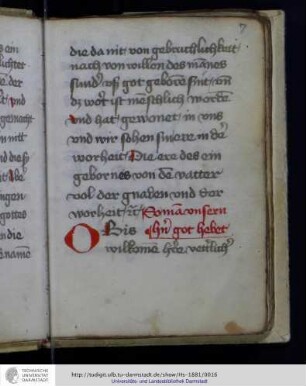 7
die da nit von gebruchlichkeit
nach von willen des mānes
sunder vß got geborē sint vn̄
dz wort ist menschlich wordē
vnd hat gewonet in vns
vnd wir sahen sinere in der
worheit Die ere des ein
gebornes von dē vatter
vol der gnaden vnd der
worheit Domā vnsern
O Bis hn̄ got hebet
wilkome here
ein
lichtet
e der
vnd
gemacht
in nit
nd dieß
ht
ngen
gottes
n die
name
TECHNISCHE UNIVERSITÄT DARMSTADT
http://tudigit.ulb.tu-darmstadt.de/show/Hs-1881/0019
Universitäts- und Landesbibliothek Darmstadt